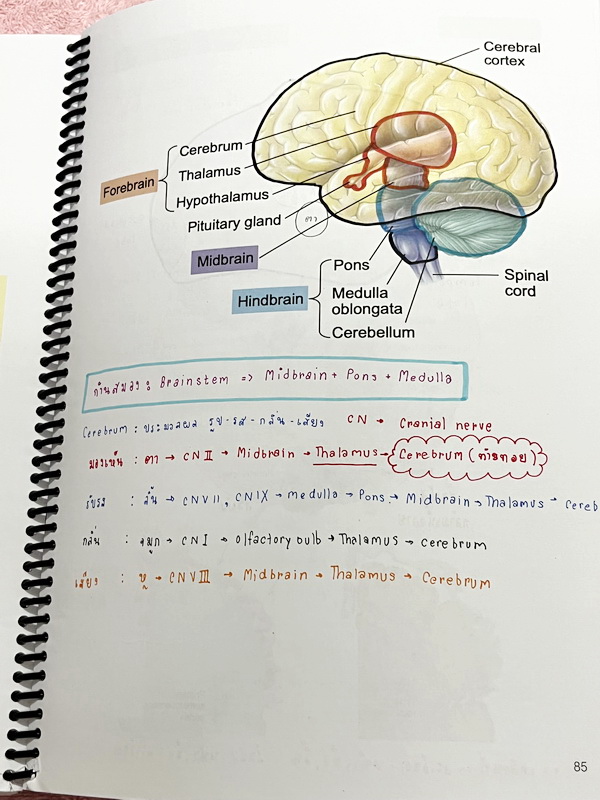 Cerebral
cortex
Cerebrum
Thalamus
Forebrain
Hypothalamus
Pituitary gland
ตา
Midbrain
Pons
Spinal
cord
Hindbrain
Medulla
oblongata
Cerebellum
ก้านสมอง : Brainstem => Midbrain + Pons + Medulla
Cerebrum : ประมวลผล รูป-รส-กลิ่น-เสียง CN → Cranial nerve
มองเห็น : ตา → CN II → Midbrain → Thalamus → Cerebrum (ท้ายทอย)
รับรส : ลิ้น → CN VII, CN IX → medulla → Pons → Midbrain → Thalamus → Cereb
กลิ่น : จมูก → CN I → olfactory bulb → Thalamus → cerebrum
เสียง : หู → CN VIII → Midbrain → Thalamus → Cerebrum
85